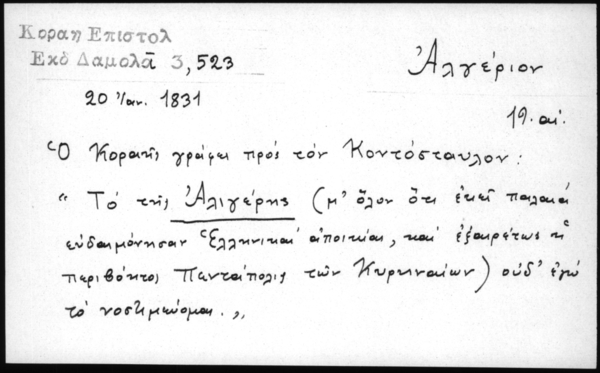 Κοραη Επιστολ
Εκδ Δαμαλᾶ 3,523
Ἀλγέριον
20 Ἰαν. 1831
19. αἰ.
Ὁ Κοραῆς γράφει πρός τόν Κοντόσταυλον:
" Τό τῆς Ἀλιγέρης (μ' ὅλον ὅτι ἐκεῖ παλαιά
εὐδαιμόνησαν Ἑλληνικαί ἀποικίαι, καί ἐξαιρέτως ἡ
περιβόητος Πεντάπολις τῶν Κυρηναίων) οὐδ' ἐγώ
τό νοστιμεύομαι. "